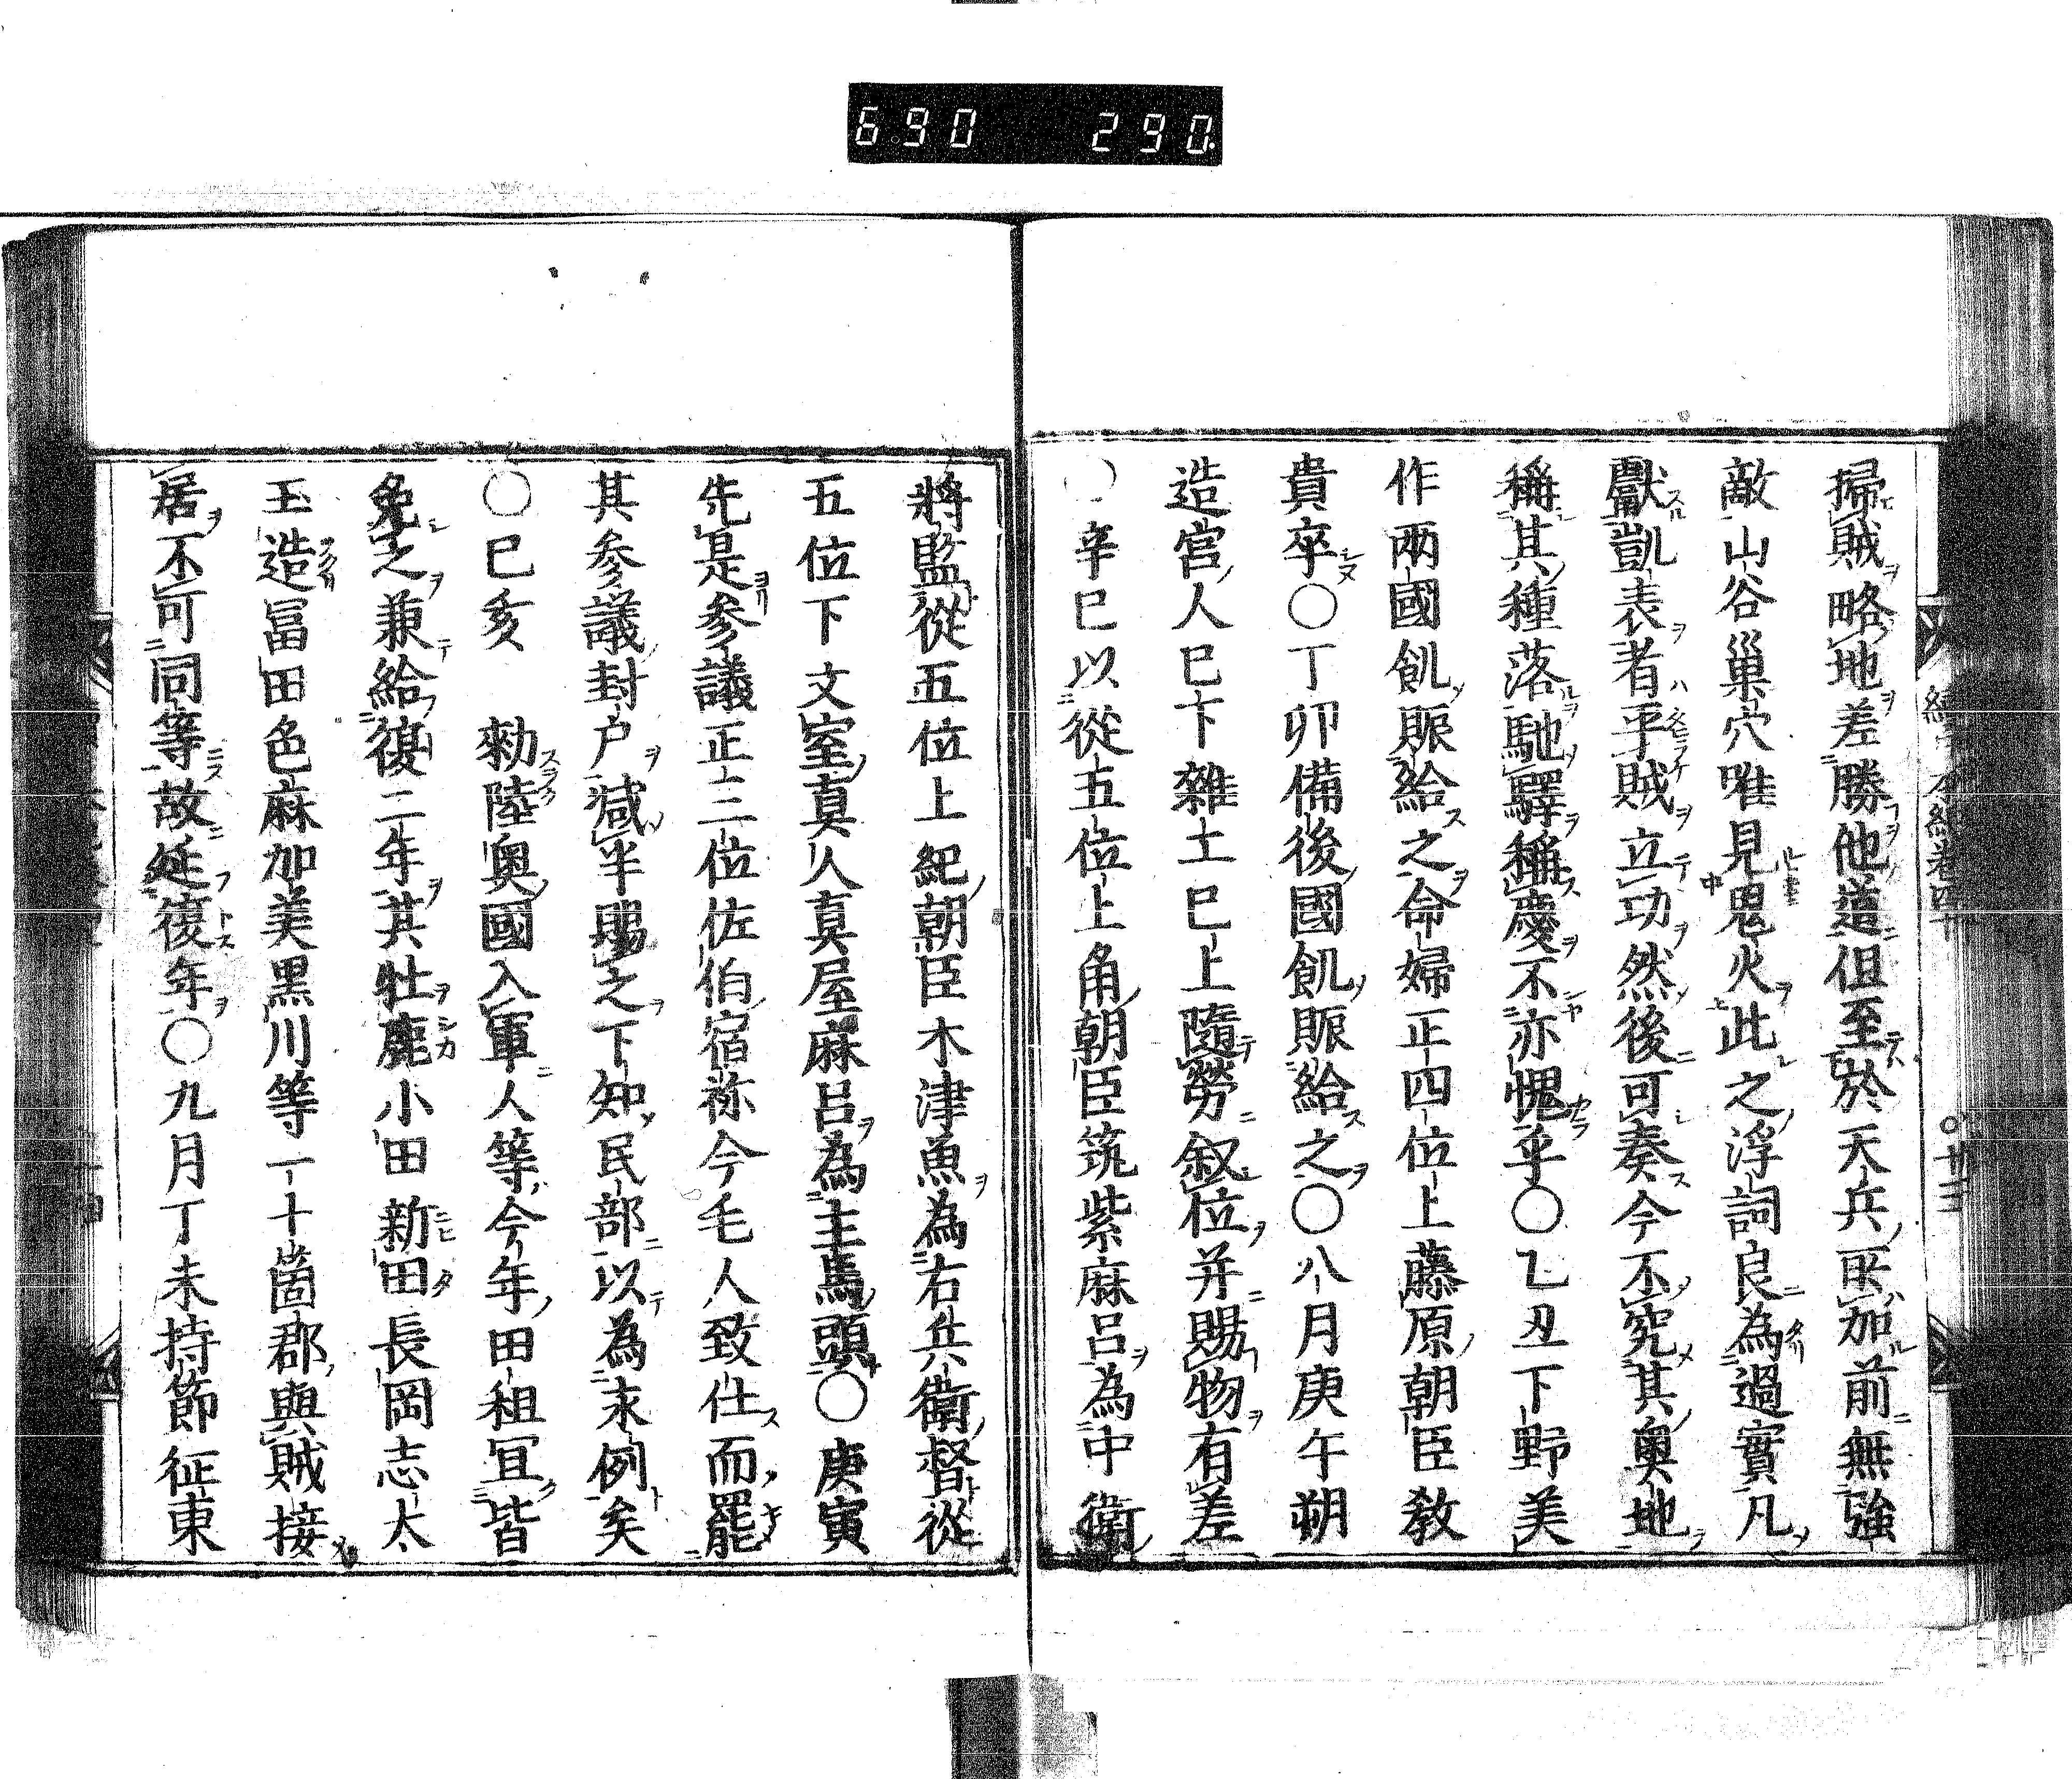 6.90 290.
掃賊略地差勝他道但至於天兵所加前無強
敵山谷巢穴唯見鬼火此之浮詞良為過實凡
獻凱表者平賊立功然後可奏今不究其奧地
稱其種落馳驛稱慶不亦愧乎〇乙丑下野美
作兩國飢賑給之命婦正四位上藤原朝臣教
貴卒〇丁卯備後國飢賑給之〇八月庚午朔
造宮人已下雜士已上隨勞叙位并賜物有差
〇辛巳以從五位上角朝臣筑紫麻呂為中衛
將監從五位上紀朝臣木津魚為右兵衛督從
五位下文室真人真屋麻呂為主馬頭〇庚寅
先是參議正三位佐伯宿祢今毛人致仕而罷
其參議封戶減半賜之下知民部以為永例矣
〇巳亥 勑陸奧國入軍人等今年田租宜皆
免之兼給復二年其牡鹿小田新田長岡志太
玉造冨田色麻加美黑川等一十箇郡與賊接
居不可同等故延復年〇九月丁未持節征東